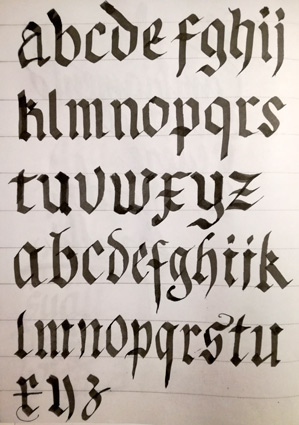 abcdefghij
klmnopqrs
tuvwxyz
abcdefghijk
lmnopqrstu
xyz